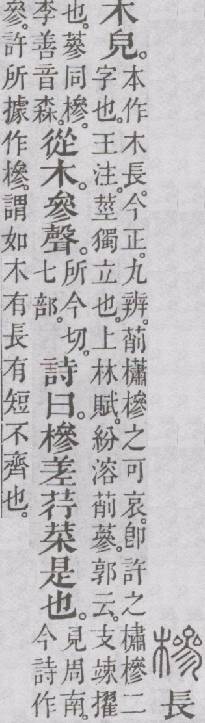 槮長
木皃。本作木長。今正。九辨。萷櫹槮之可哀。卽許之橚槮二字也。王注。莖獨立也。上林賦。紛溶萷蔘。郭云。支竦擢
也。蔘同槮。李善音森。從木。參聲。所今切。七部。詩曰。槮差荇菜是也。見周南。今詩作
參。許所據作槮。謂如木有長有短不齊也。